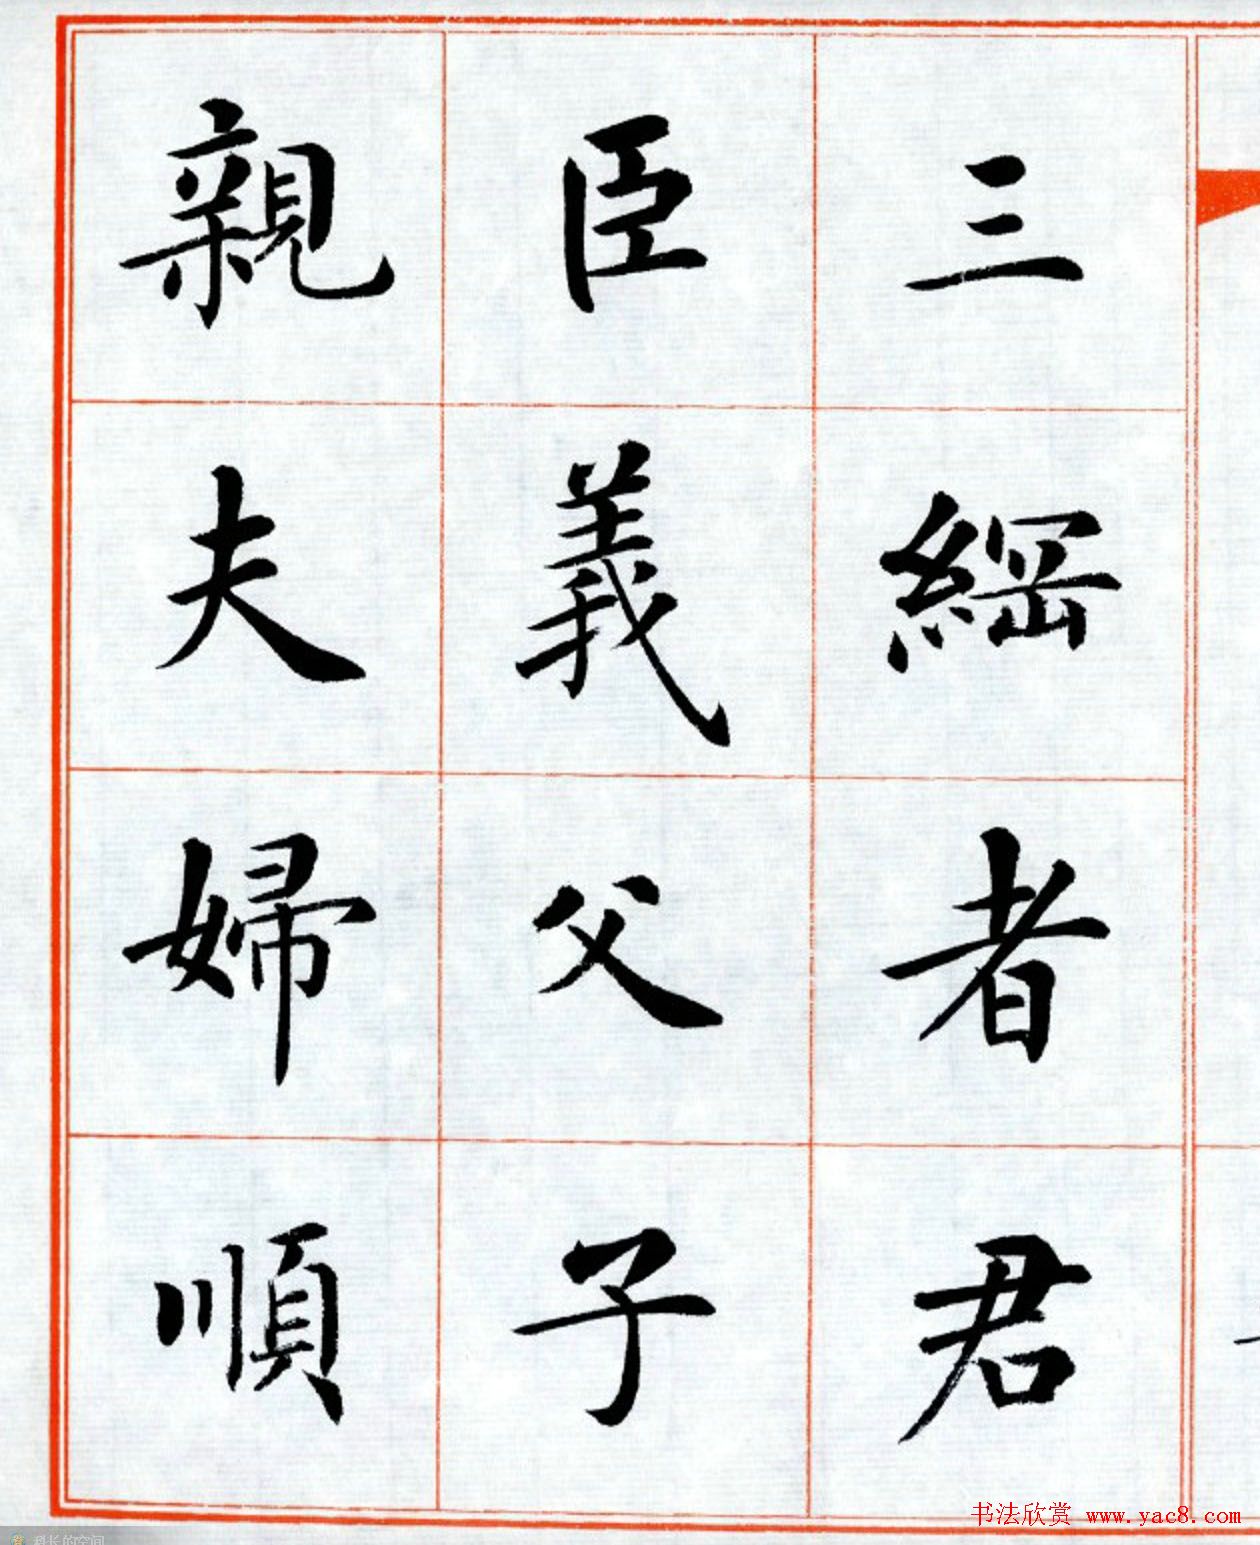 三綱者君
臣義父子
親夫婦順
书法欣赏 www.yac8.com
科长的空间